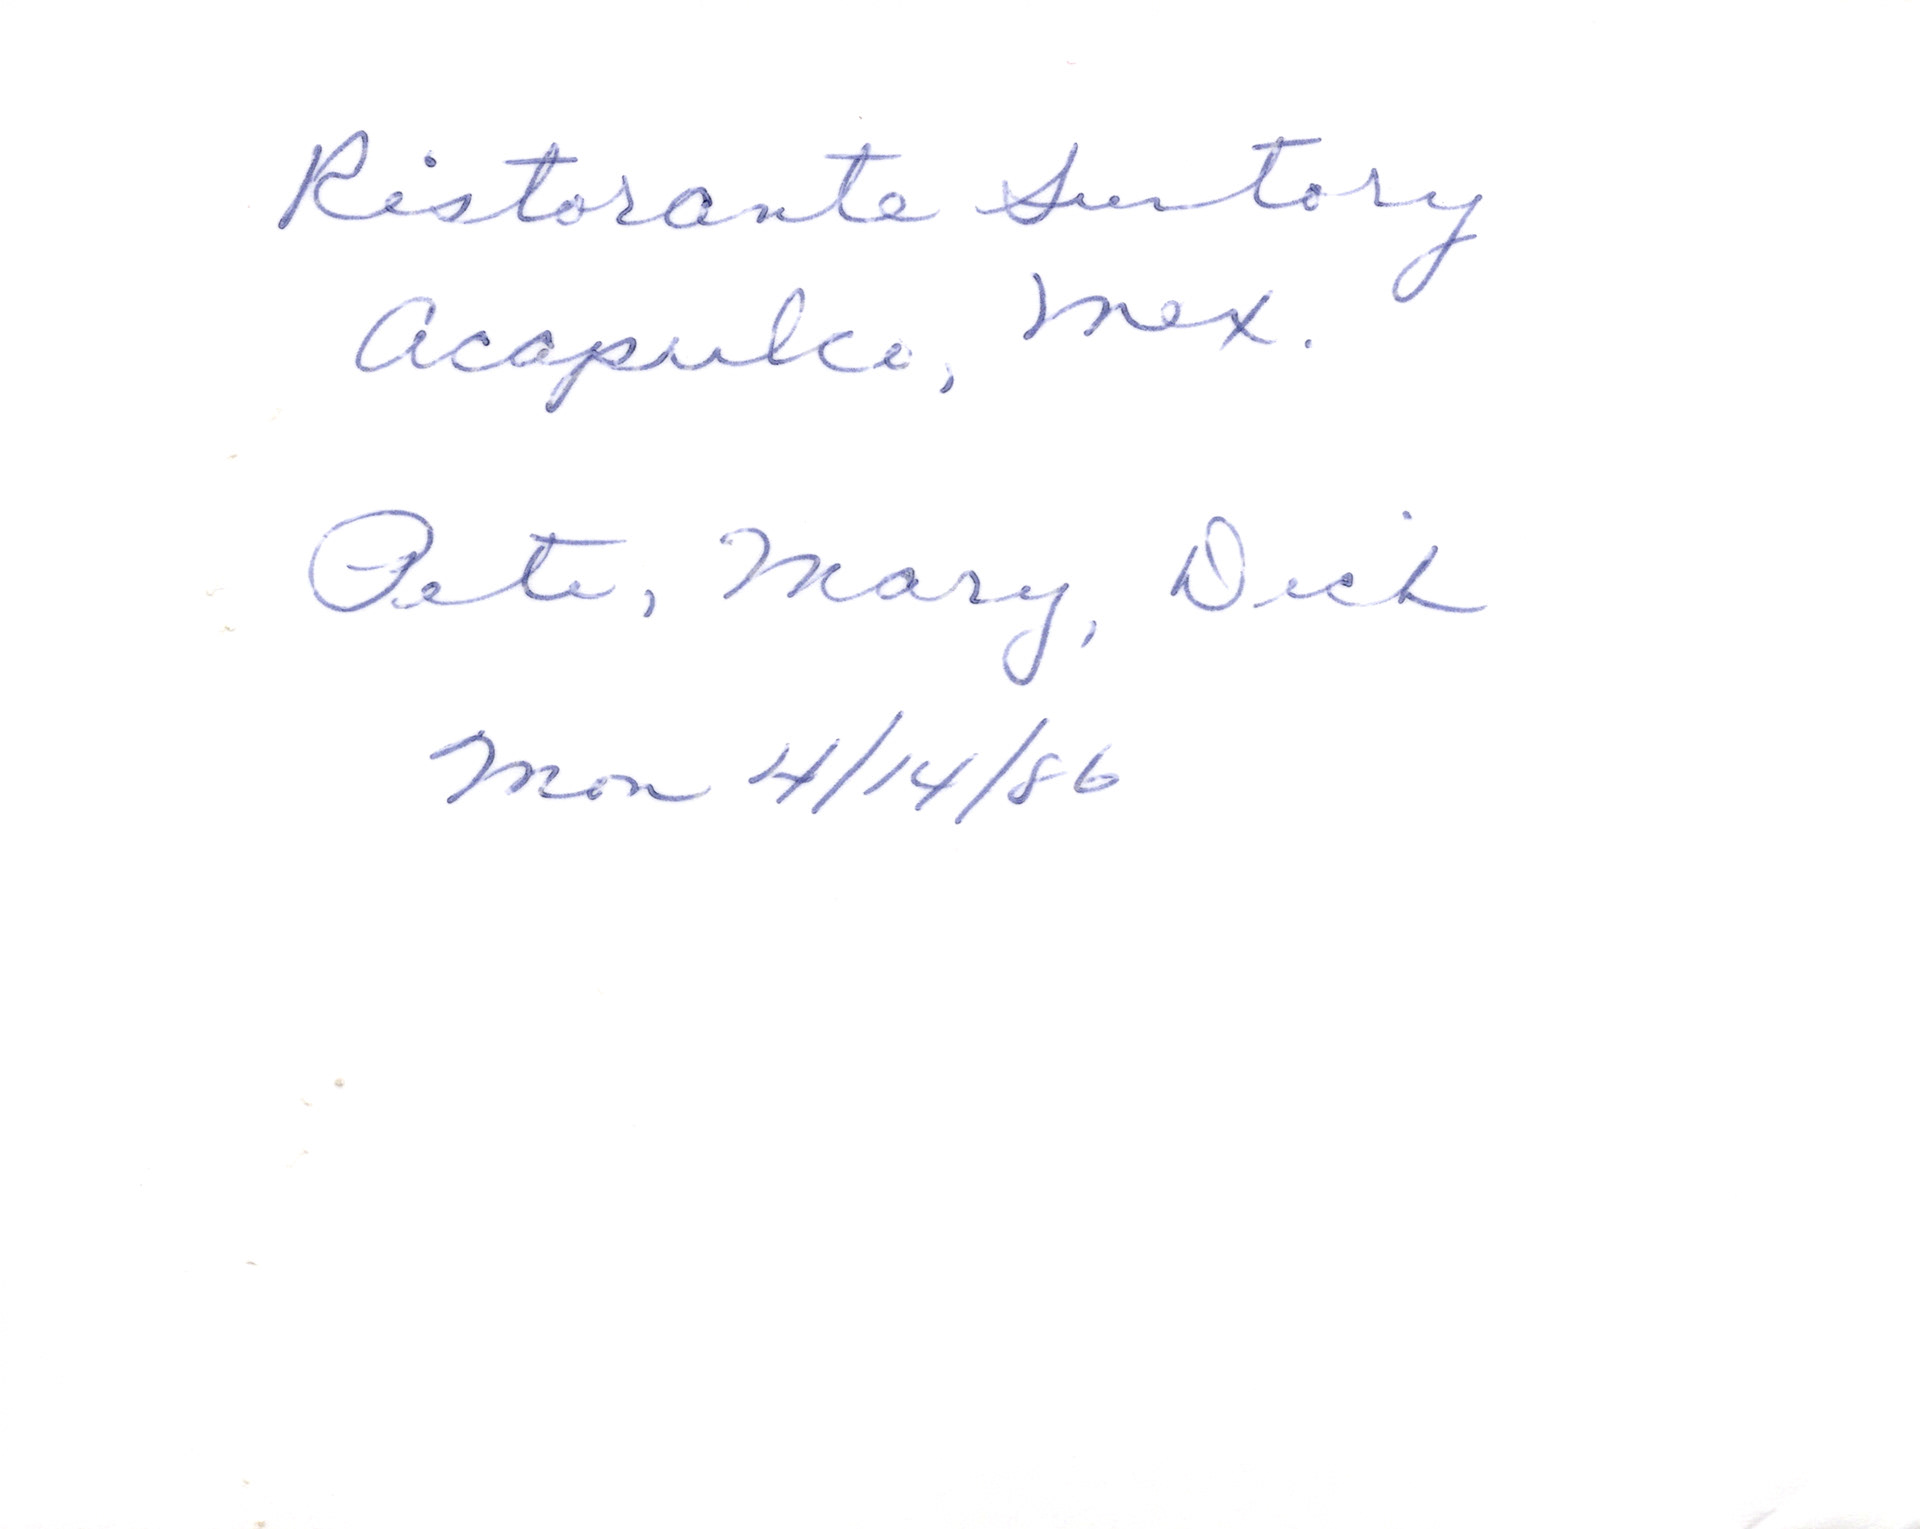 Ristorante Suntory
Acapulco, Mex.
Pete, Mary, Dick
Mon 4/14/86